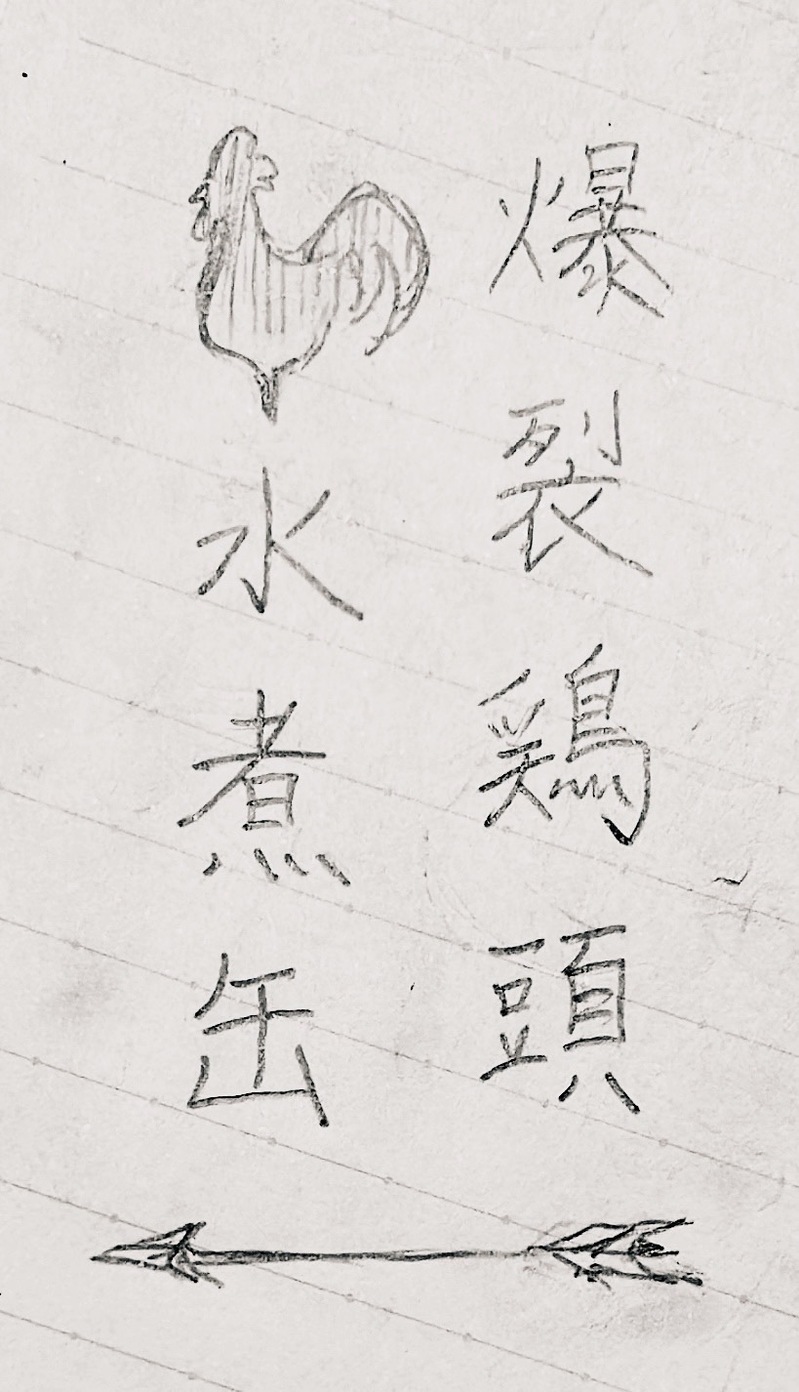 爆裂鶏頭
水煮缶